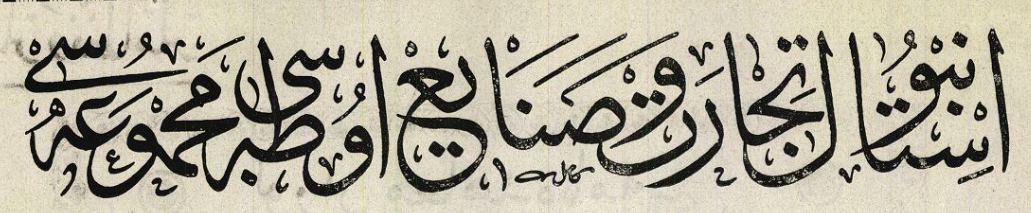 استانبول تجارت و صنايع اوطه‌سى مجموعه‌سى